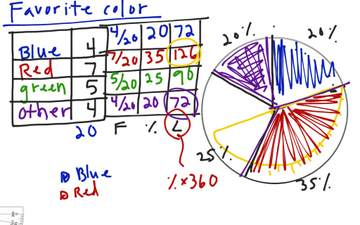 Favorite color
Blue 4 4/20 20 72
Red 7 7/20 35 126
green 5 5/20 25 90
other 4 4/20 20 72
20 F % L
Blue
Red
% x 360
20% 20%
25% 35%